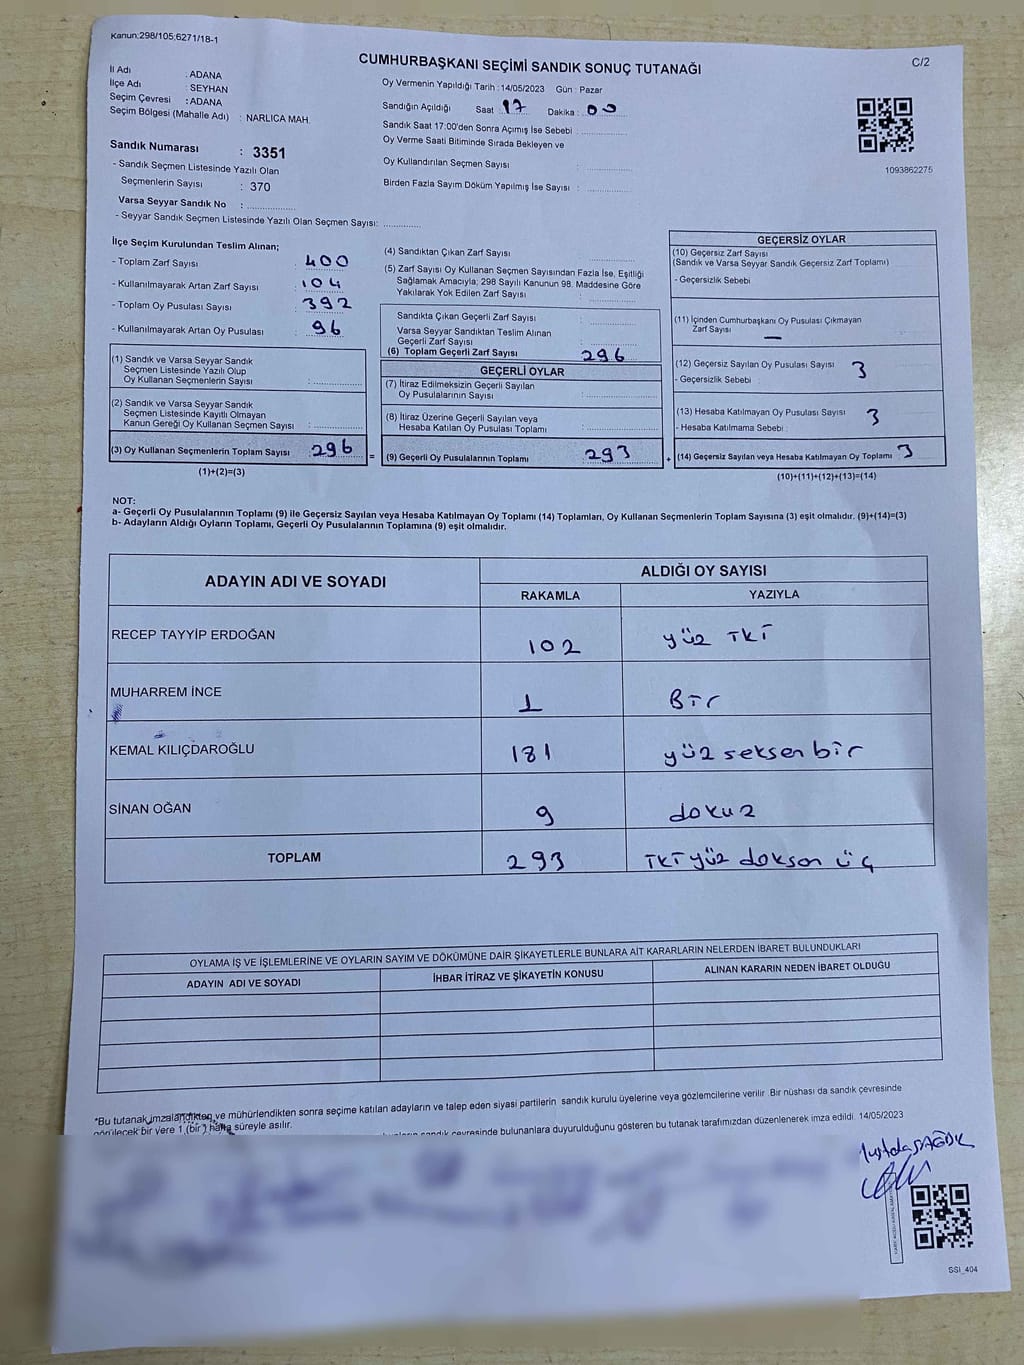 Kanun:298/105;6271/18-1
C/2
CUMHURBAŞKANI SEÇİMİ SANDIK SONUÇ TUTANAĞI
İl Adı : ADANA
İlçe Adı : SEYHAN
Seçim Çevresi : ADANA
Seçim Bölgesi (Mahalle Adı) : NARLICA MAH.
Oy Vermenin Yapıldığı Tarih : 14/05/2023 Gün : Pazar
Sandığın Açıldığı Saat : 17 Dakika : 00
Sandık Saat 17:00'den Sonra Açımış İse Sebebi :
Oy Verme Saati Bitiminde Sırada Bekleyen ve
Oy Kullandırılan Seçmen Sayısı :
Birden Fazla Sayım Döküm Yapılmış İse Sayısı :
1093862275
Sandık Numarası : 3351
- Sandık Seçmen Listesinde Yazılı Olan
Seçmenlerin Sayısı : 370
Varsa Seyyar Sandık No :
- Seyyar Sandık Seçmen Listesinde Yazılı Olan Seçmen Sayısı:
İlçe Seçim Kurulundan Teslim Alınan;
- Toplam Zarf Sayısı : 400
- Kullanılmayarak Artan Zarf Sayısı : 104
- Toplam Oy Pusulası Sayısı : 392
- Kullanılmayarak Artan Oy Pusulası : 96
(1) Sandık ve Varsa Seyyar Sandık
Seçmen Listesinde Yazılı Olup
Oy Kullanan Seçmenlerin Sayısı :
(2) Sandık ve Varsa Seyyar Sandık
Seçmen Listesinde Kayıtlı Olmayan
Kanun Gereği Oy Kullanan Seçmen Sayısı :
(3) Oy Kullanan Seçmenlerin Toplam Sayısı : 296
(1)+(2)=(3)
(4) Sandıktan Çıkan Zarf Sayısı :
(5) Zarf Sayısı Oy Kullanan Seçmen Sayısından Fazla İse, Eşitliği
Sağlamak Amacıyla; 298 Sayılı Kanunun 98. Maddesine Göre
Yakılarak Yok Edilen Zarf Sayısı :
Sandıkta Çıkan Geçerli Zarf Sayısı :
Varsa Seyyar Sandıktan Teslim Alınan
Geçerli Zarf Sayısı :
(6) Toplam Geçerli Zarf Sayısı : 296
GEÇERLİ OYLAR
(7) İtiraz Edilmeksizin Geçerli Sayılan
Oy Pusulalarının Sayısı :
(8) İtiraz Üzerine Geçerli Sayılan veya
Hesaba Katılan Oy Pusulası Toplamı :
= (9) Geçerli Oy Pusulalarının Toplamı : 293 +
GEÇERSİZ OYLAR
(10) Geçersiz Zarf Sayısı
(Sandık ve Varsa Seyyar Sandık Geçersiz Zarf Toplamı)
- Geçersizlik Sebebi :
(11) İçinden Cumhurbaşkanı Oy Pusulası Çıkmayan
Zarf Sayısı : —
(12) Geçersiz Sayılan Oy Pusulası Sayısı : 3
- Geçersizlik Sebebi :
(13) Hesaba Katılmayan Oy Pusulası Sayısı : 3
- Hesaba Katılmama Sebebi :
(14) Geçersiz Sayılan veya Hesaba Katılmayan Oy Toplamı : 3
(10)+(11)+(12)+(13)=(14)
NOT:
a- Geçerli Oy Pusulalarının Toplamı (9) ile Geçersiz Sayılan veya Hesaba Katılmayan Oy Toplamı (14) Toplamları, Oy Kullanan Seçmenlerin Toplam Sayısına (3) eşit olmalıdır. (9)+(14)=(3)
b- Adayların Aldığı Oyların Toplamı, Geçerli Oy Pusulalarının Toplamına (9) eşit olmalıdır.
ADAYIN ADI VE SOYADI
ALDIĞI OY SAYISI
RAKAMLA YAZIYLA
RECEP TAYYİP ERDOĞAN 102 yüz İKİ
MUHARREM İNCE 1 Bir
KEMAL KILIÇDAROĞLU 181 yüz seksen bir
SİNAN OĞAN 9 dokuz
TOPLAM 293 İKİ yüz doksan üç
OYLAMA İŞ VE İŞLEMLERİNE VE OYLARIN SAYIM VE DÖKÜMÜNE DAİR ŞİKAYETLERLE BUNLARA AİT KARARLARIN NELERDEN İBARET BULUNDUKLARI
ADAYIN ADI VE SOYADI İHBAR İTİRAZ VE ŞİKAYETİN KONUSU ALINAN KARARIN NEDEN İBARET OLDUĞU
*Bu tutanak imzalandıktan ve mühürlendikten sonra seçime katılan adayların ve talep eden siyasi partilerin sandık kurulu üyelerine veya gözlemcilerine verilir. Bir nüshası da sandık çevresinde
görülecek bir yere 1 (bir) hafta süreyle asılır.
sandık çevresinde bulunanlara duyurulduğunu gösteren bu tutanak tarafımızdan düzenlenerek imza edildi. 14/05/2023
SSI_404